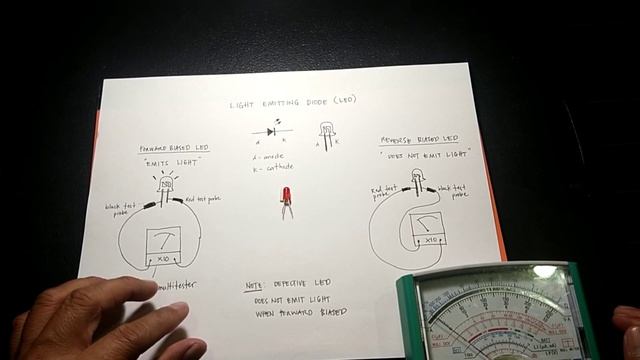 LIGHT EMITTING DIODE (LED)
FORWARD BIASED LED
"EMITS LIGHT"
black test
probe
Red test probe
X10
multitester
A K
A - anode
K - cathode
A K
NOTE: DEFECTIVE LED
DOES NOT EMIT LIGHT
WHEN FORWARD BIASED
REVERSE BIASED LED
"DOES NOT EMIT LIGHT"
Red test
probe
black test
probe
X10